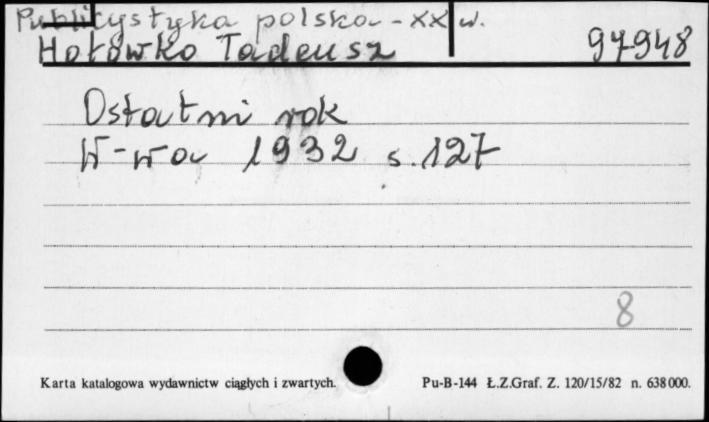 Publicystyka polska - XX w.
Hołówko Tadeusz 97948
Ostatni rok
W-wa 1932 s. 127
8
Karta katalogowa wydawnictw ciągłych i zwartych. Pu-B-144 Ł.Z.Graf. Z. 120/15/82 n. 638000.